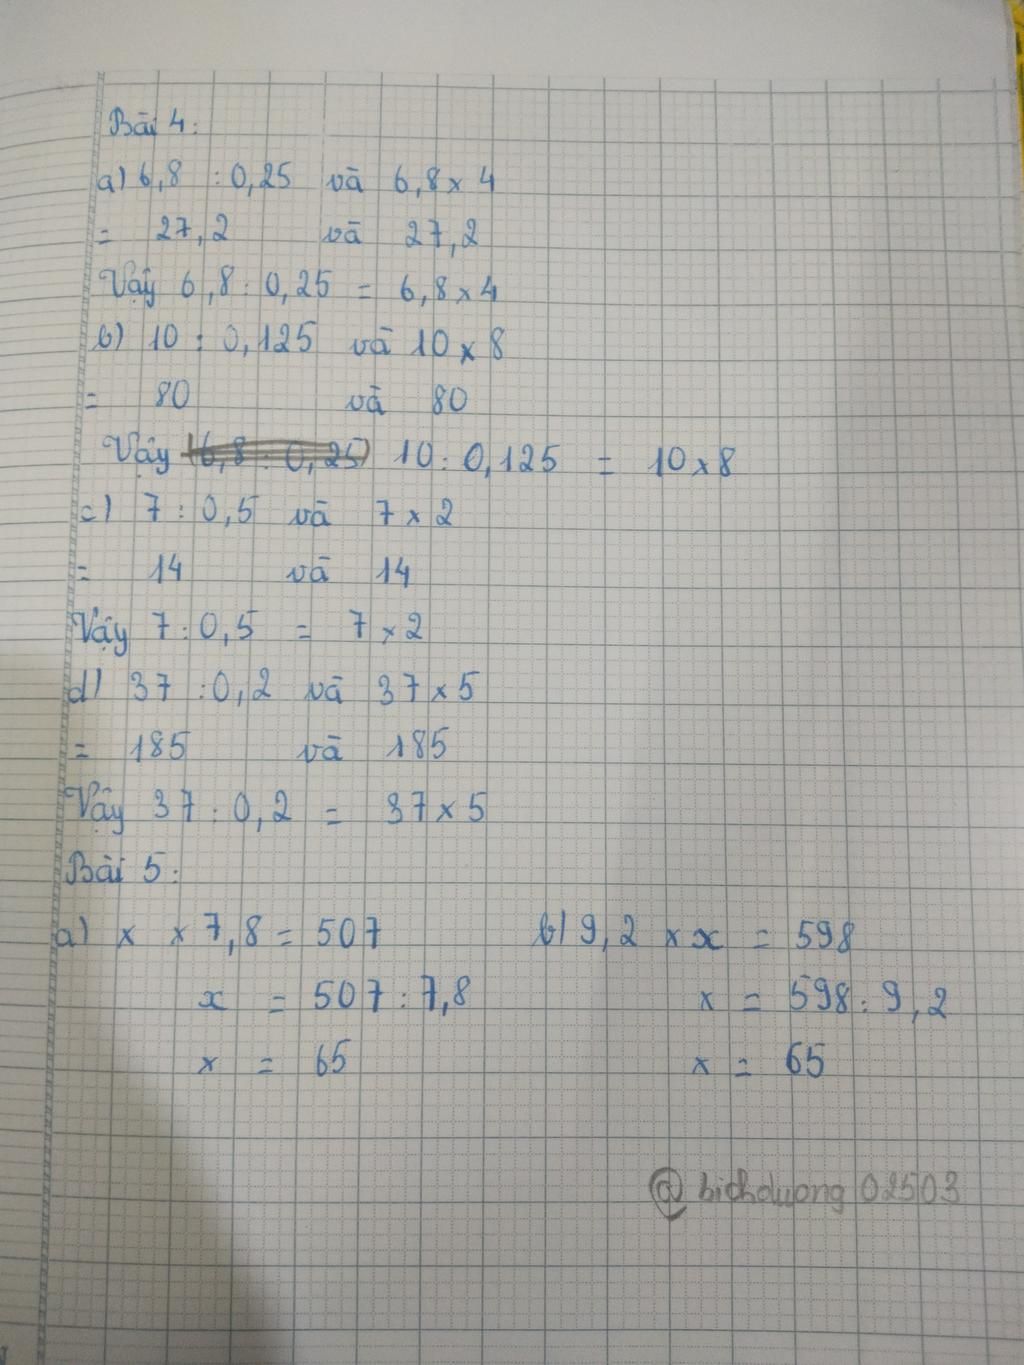 Bài 4:
a) 6,8 : 0,25 và 6,8 x 4
= 27,2 và 27,2
Vậy 6,8 : 0,25 = 6,8 x 4
b) 10 : 0,125 và 10 x 8
= 80 và 80
Vậy (6,8 : 0,25) 10 : 0,125 = 10 x 8
c) 7 : 0,5 và 7 x 2
= 14 và 14
Vậy 7 : 0,5 = 7 x 2
d) 37 : 0,2 và 37 x 5
= 185 và 185
Vậy 37 : 0,2 = 37 x 5
Bài 5:
a) x x 7,8 = 507 b) 9,2 x x = 598
x = 507 : 7,8 x = 598 : 9,2
x = 65 x = 65
@bichduong02503